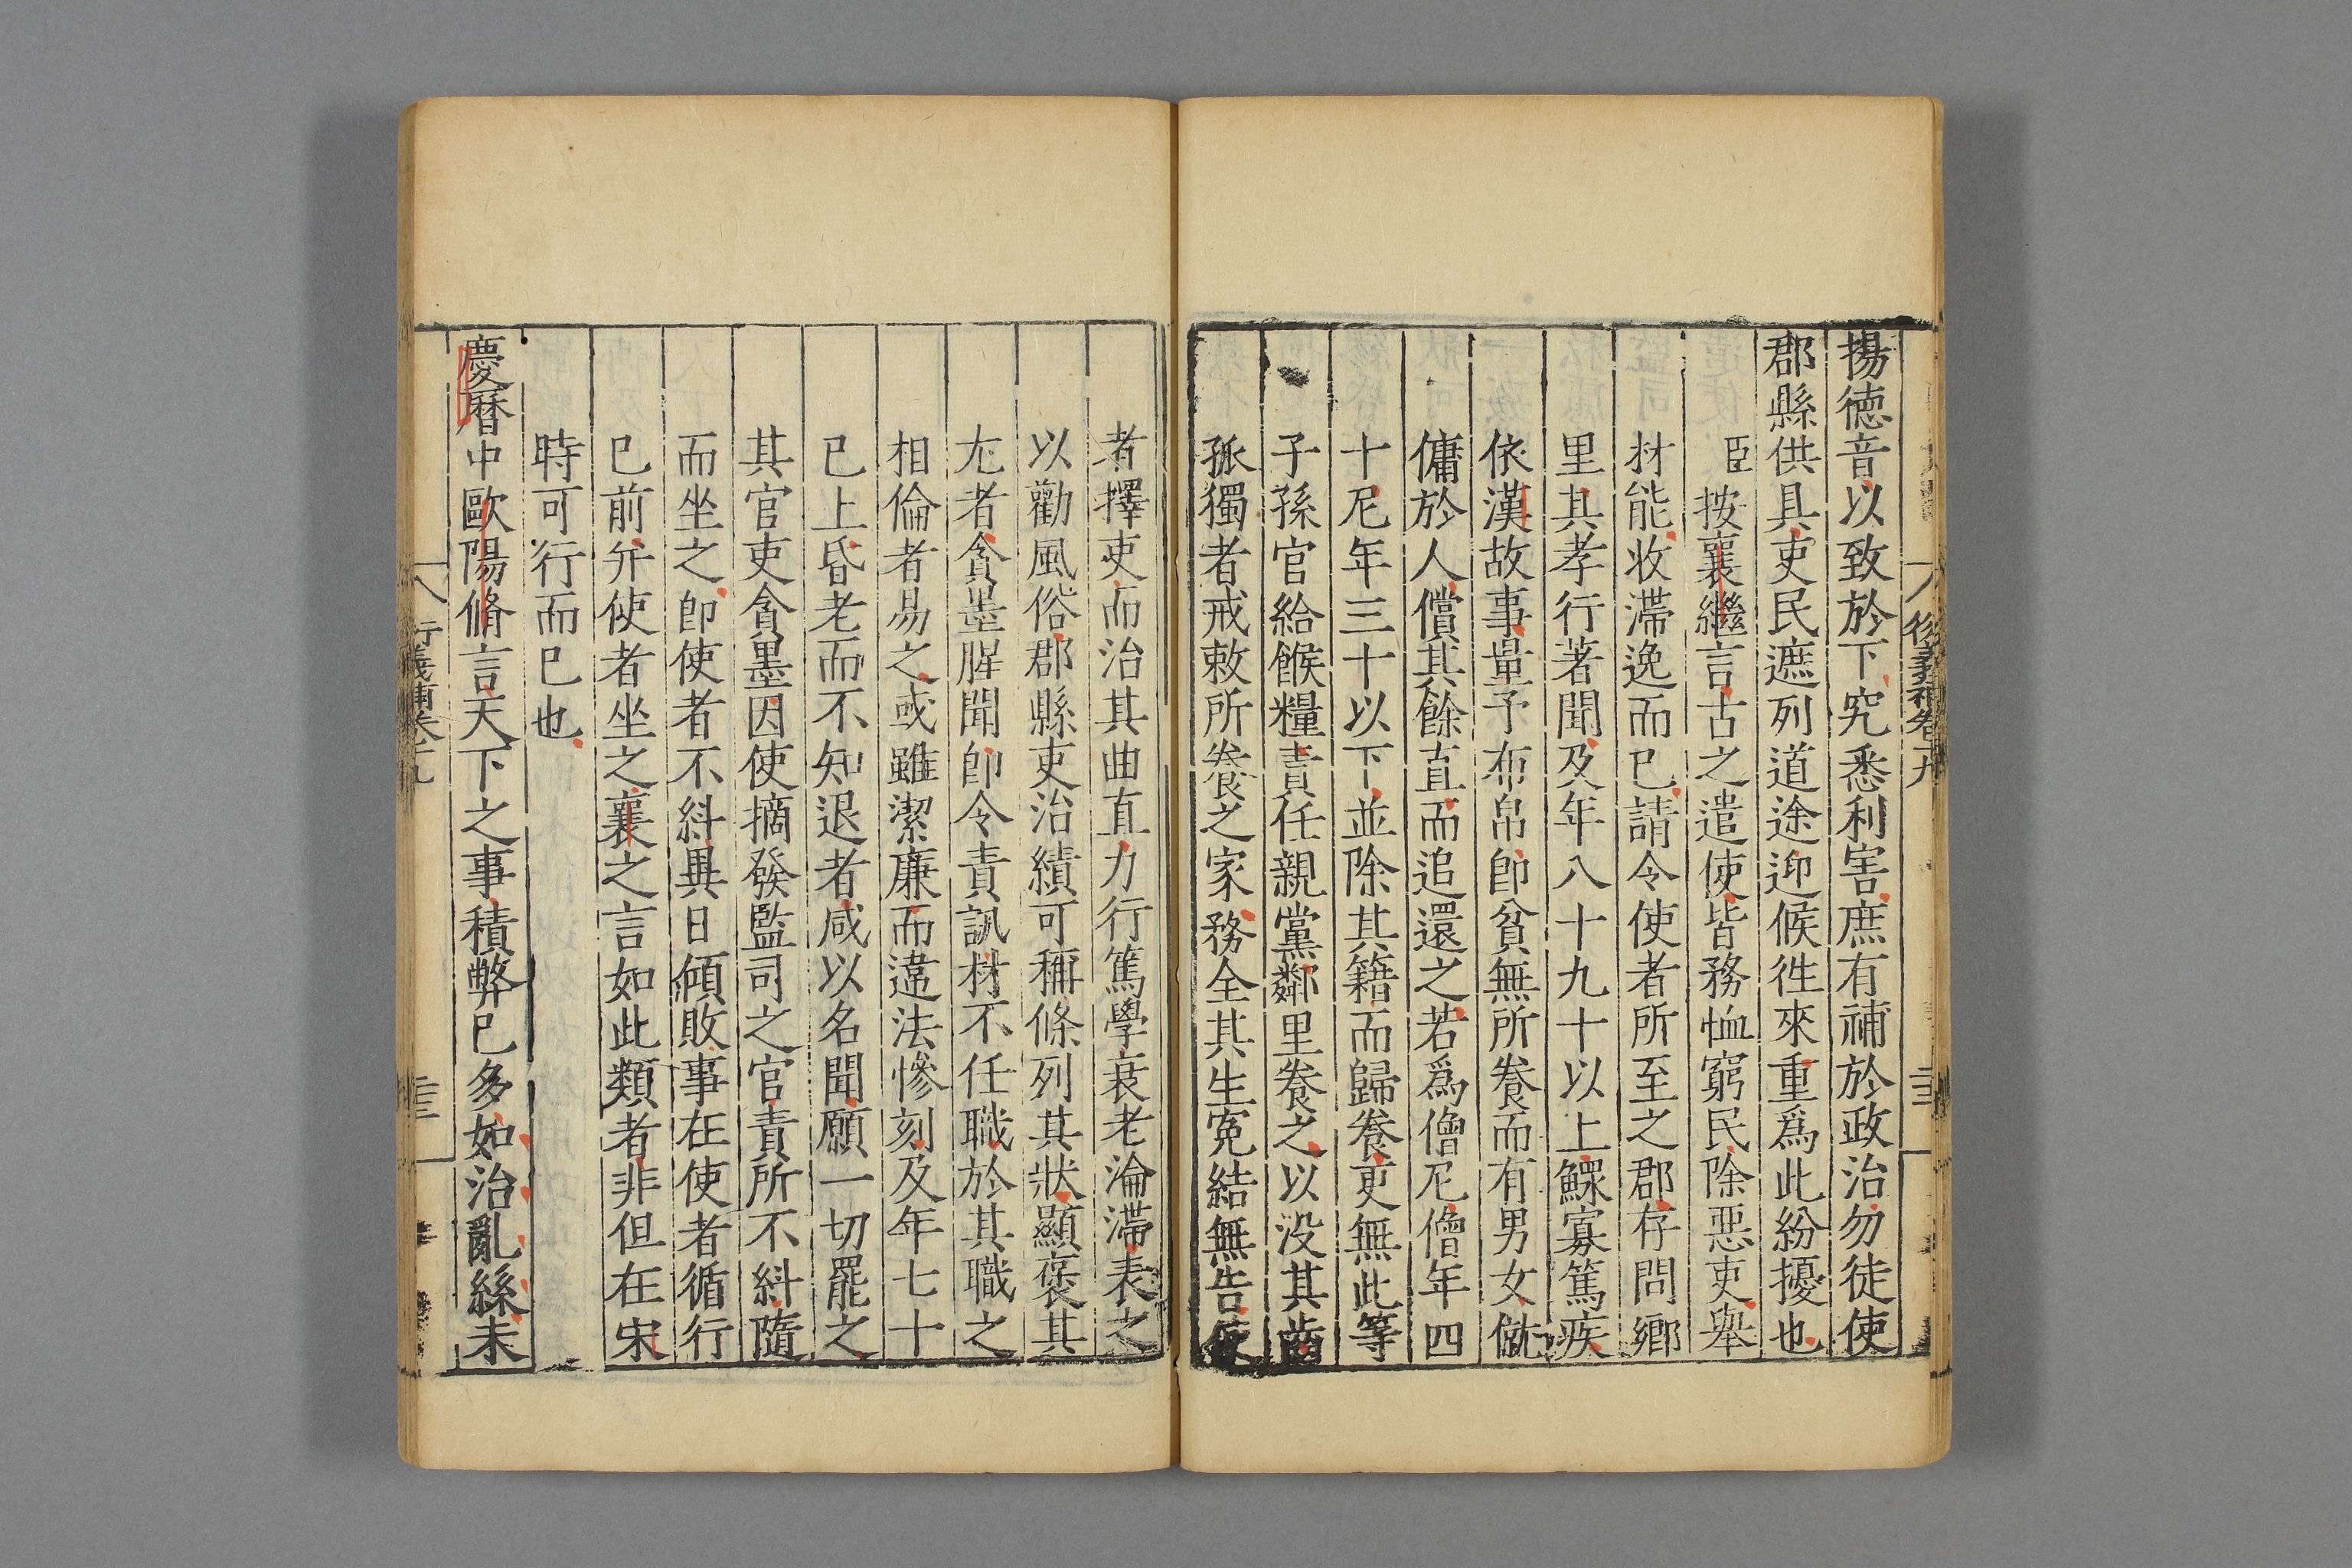 揚德音以致於下究悉利害庶有補於政治勿徒使
郡縣供具吏民遮列道途迎候徃來重爲此紛擾也
臣按襄繼言古之遣使皆務恤窮民除惡吏舉
材能收滯逸而已請令使者所至之郡存問鄉
里其孝行著聞及年八十九十以上鰥寡篤疾
依漢故事量予布帛卽貧無所養而有男女僦
傭於人償其餘直而追還之若爲僧尼僧年四
十尼年三十以下並除其籍而歸養更無此等
子孫官給餱糧責任親黨鄰里養之以没其齒
孤獨者戒敕所養之家務全其生冤結無告
者擇吏而治其曲直力行篤學衰老淪滯表之
以勸風俗郡縣吏治績可稱條列其狀顯褒其
尤者貪墨腥聞卽令責訊材不任職於其職之
相倫者易之或雖潔廉而違法慘刻及年七十
已上昏老而不知退者咸以名聞願一切罷之
其官吏貪墨因使摘發監司之官責所不糾隨
而坐之卽使者不糾異日傾敗事在使者循行
已前幷使者坐之襄之言如此類者非但在宋
時可行而已也
慶曆中歐陽脩言天下之事積弊已多如治亂絲未